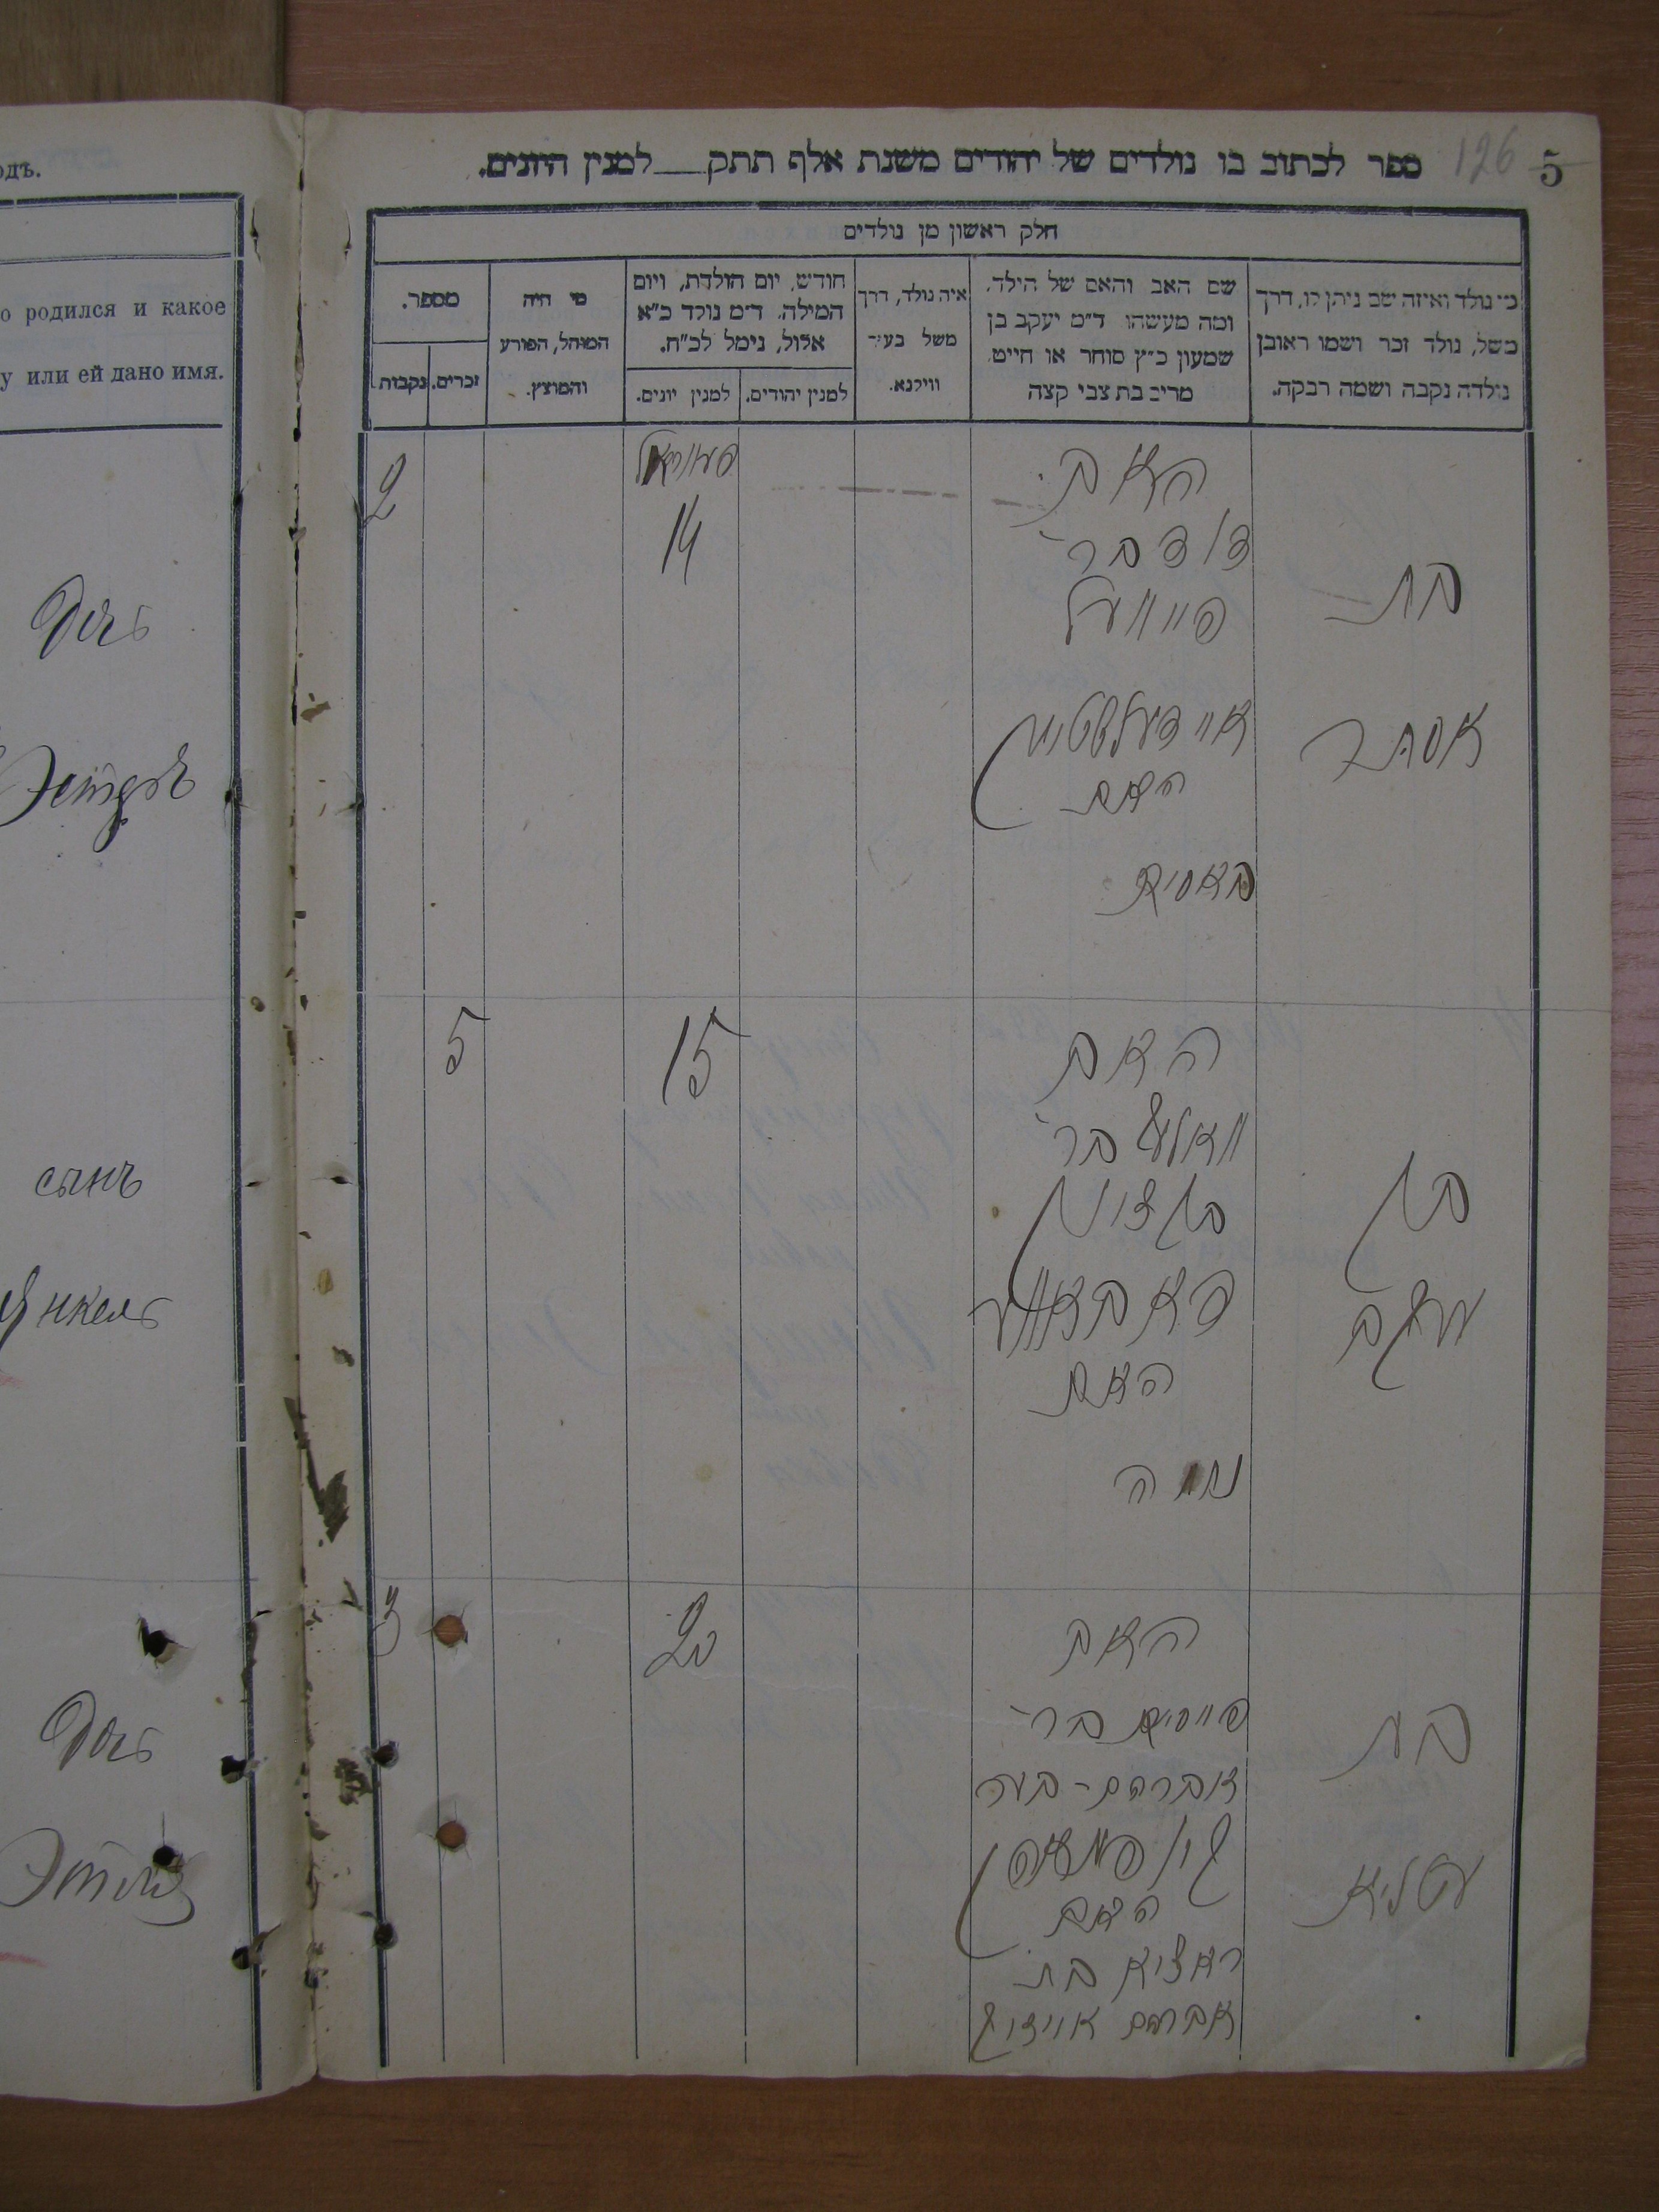 одъ.
о родился и какое
у или ей дано имя.
Дочь
Эстеръ
сынъ
Янкель
Дочь
126
5
ספר לכתוב בו נולדים של יהודים משנת אלף תתק___למנין היונים.
חלק ראשון מן נולדים
מי נולד ואיזה שם ניתן לו, דרך
משל, נולד זכר ושמו ראובן
נולדה נקבה ושמה רבקה.
שם האב והאם של הילד,
ומה מעשהו ד״מ יעקב בן
שמעון כ״ץ סוחר או חייט
מרים בת צבי קצה
איה נולד, דרך
משל בעיר
ווילנא.
חודש, יום הולדת, ויום
המילה. ד״מ נולד כ״א
אלול, נימל לכ״ח.
למנין יהודים.
למנין יונים.
מי היה
המוהל, הפורע
והמוצץ.
מספר.
זכרים.
נקבות
בת
אסתר
האב
דוד בר׳
פייוועל
האם
פעוראל
14
2
בן
יעקב
האב
בר׳
בן ציון
האם
15
5
בת
עטליא
האב
בר׳
אברהם-בער
האם
בת
אברהם
20
3